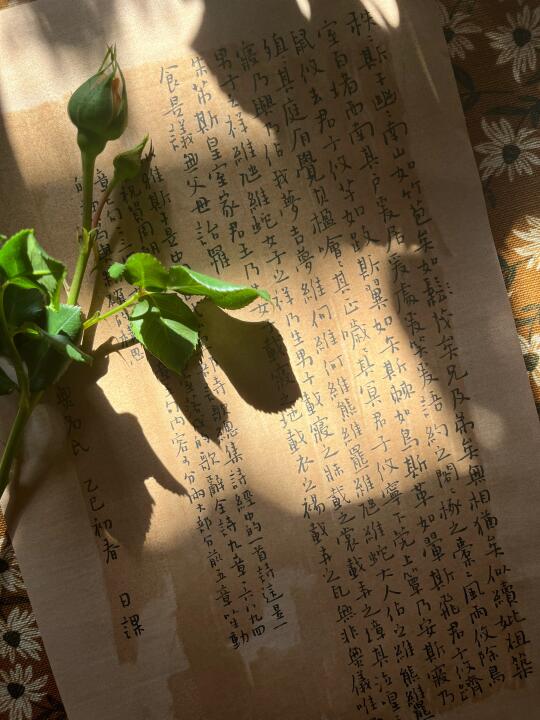 秩斯干幽南山如竹苞矣如鬆茂矣兄及弟矣無相猶矣似續妣祖築
室百堵西南其戶爰居爰處爰笑爰語約之閣椓之橐風雨攸除鳥
鼠攸去君子攸芋如跂斯翼如矢斯棘如鳥斯革如翬斯飛君子攸躋
殖其庭有覺其楹噲其正噦其冥君子攸寧下莞上簟乃安斯寢乃
寢乃興乃佔我夢吉夢維何維熊維羆維虺維蛇大人佔之維熊維羆
男子之祥維虺維蛇女子之祥乃生男子載寢之牀載衣之裳載弄之璋其泣喤
朱芾斯皇室家君王乃載寢地載衣之裼載弄之瓦無非無儀唯
食是議無父母詒罹
雅斯干是中詩歌總集詩經中的一首詩這是一
祝賀周朝室落成的歌辭全詩九章六八九四
章句三內容可分兩大部分前五章生動
的
無名氏 乙巳初春 日課